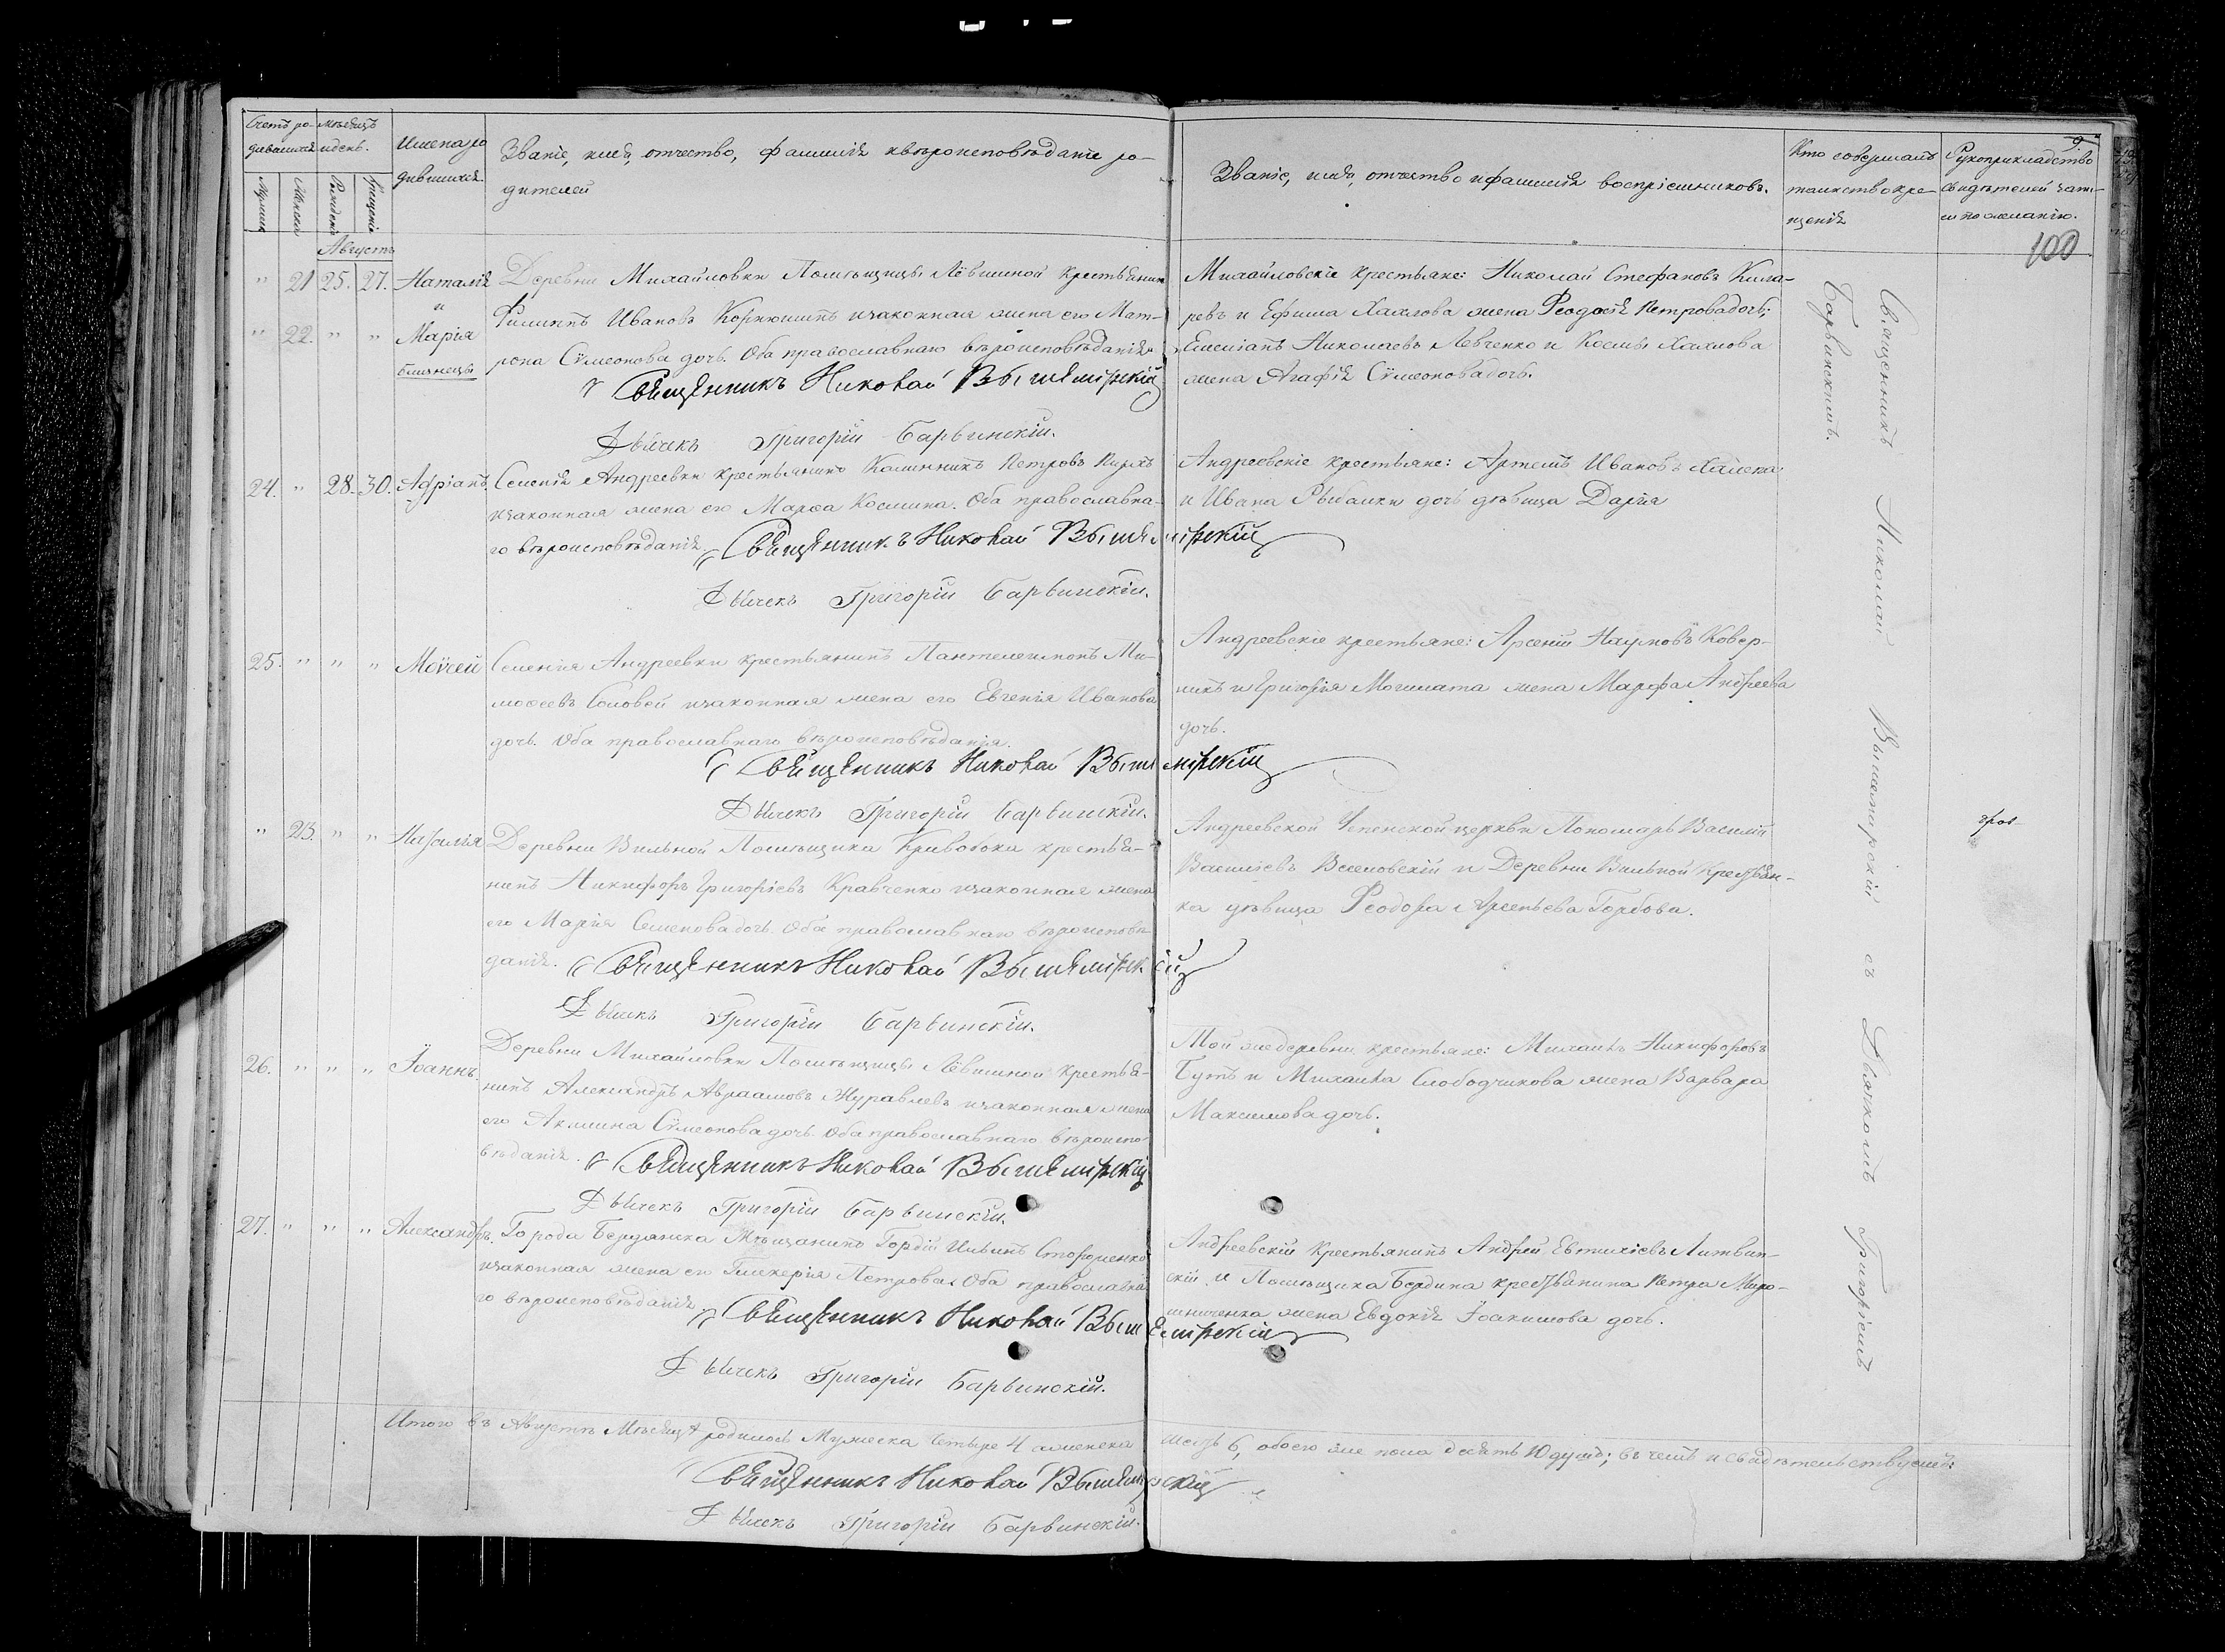 Счетъ ро-
дившихся
мѣсяцъ
и день.
Имена ро
дившихся.
Званіе, имя, отчество, фамилія и вѣроисповѣданіе ро-
дителей
Званіе, имя, отчество и фамилія воспріемниковъ.
Кто совершалъ
таинство кре-
щенія
Рукоприкладство
свидѣтелей запи-
си по желанію.
Мужеска
Женска
Рожденія
Крещенія
100
Августъ
" 21 25. 27. Наталія
и
" 22. " " Марія
близнецы
Деревни Михайловки Помѣщицы Лёвшиной крестьянинъ
Филиппъ Ивановъ Корнюшинъ и законная жена его Мат-
рона Сѵмеонова дочь. Оба православнаго вѣроисповѣданія.
Священникъ Николай Вышемірскій
Дьячекъ Григорій Барвинскій.
Михайловскіе крестьяне: Николай Стефановъ Кила-
ревъ и Ефима Хахлова жена Ѳеодосія Петрова дочь;
Емеліанъ Николаевъ Левченко и Космы Хахлова
жена Агафія Сѵмеонова дочь.
Священникъ Николай Вышемірскій съ Дьячкомъ Григоріемъ
Барвинскимъ.
24. " 28. 30. Адріанъ.
Селенія Андреевки крестьянинъ Калинникъ Петровъ
и законная жена его Марѳа Космина. Оба православна-
го вѣроисповѣданія.
Священникъ Николай Вышемірскій
Дьячекъ Григорій Барвинскій.
Андреевскіе крестьяне: Артемъ Ивановъ
и Ивана Рыбалки дочь дѣвица Дарія
25. " " " Моѵсей
Селенія Андреевки крестьянинъ Пантелеимонъ Ти-
моѳеевъ Соловей и законная жена его Евгенія Иванова
дочь. Оба православнаго вѣроисповѣданія.
Священникъ Николай Вышемірскій
Дьячекъ Григорій Барвинскій.
Андреевскіе крестьяне: Арсеній Наумовъ Ковер-
никъ и Григорія Могилата жена Марфа Андреева
дочь.
" 23. " " Наталія
Деревни Вильной Помѣщика Кривобока крестья-
нинъ Никифоръ Григоріевъ Кравченко и законная жена
его Марія Семенова дочь. Оба православнаго вѣроисповѣ-
данія.
Священникъ Николай Вышемірскій
Дьячекъ Григорій Барвинскій.
Андреевской Успенской церкви Пономарь Василій
Васильевъ Веселовскій и Деревни Вильной Крестьян-
ка дѣвица Ѳеодора Арсеньева Горбова.
26. " " " Іоаннъ
Деревни Михайловки Помѣщицы Лёвшиной крестья-
нинъ Александръ Авраамовъ Журавлевъ и законная жена
его Акилина Сѵмеонова дочь. Оба православнаго вѣроиспо-
вѣданія.
Священникъ Николай Вышемірскій
Дьячекъ Григорій Барвинскій.
Той же деревни крестьяне: Михаилъ Никифоровъ
Бутъ и Михаила Слободчикова жена Варвара
Максимова дочь.
27. " " " Александръ.
Города Бердянска Мѣщанинъ Гордій Ильинъ Стороженко
и законная жена его Гликерія Петрова. Оба православна-
го вѣроисповѣданія.
Священникъ Николай Вышемірскій
Дьячекъ Григорій Барвинскій.
Андреевскій Крестьянинъ Андрей Евтихіевъ Литвин-
скій и Помѣщика Бердина крестьянина Петра Миро-
шниченка жена Евдокія Іоакимова дочь.
Итого въ Августѣ Мѣсяцѣ родилось Мужеска четыре 4 а женска шесть 6, обоего же пола десять 10 душъ; въ чемъ и свидѣтельствуемъ:
Священникъ Николай Вышемірскій
Дьячекъ Григорій Барвинскій.